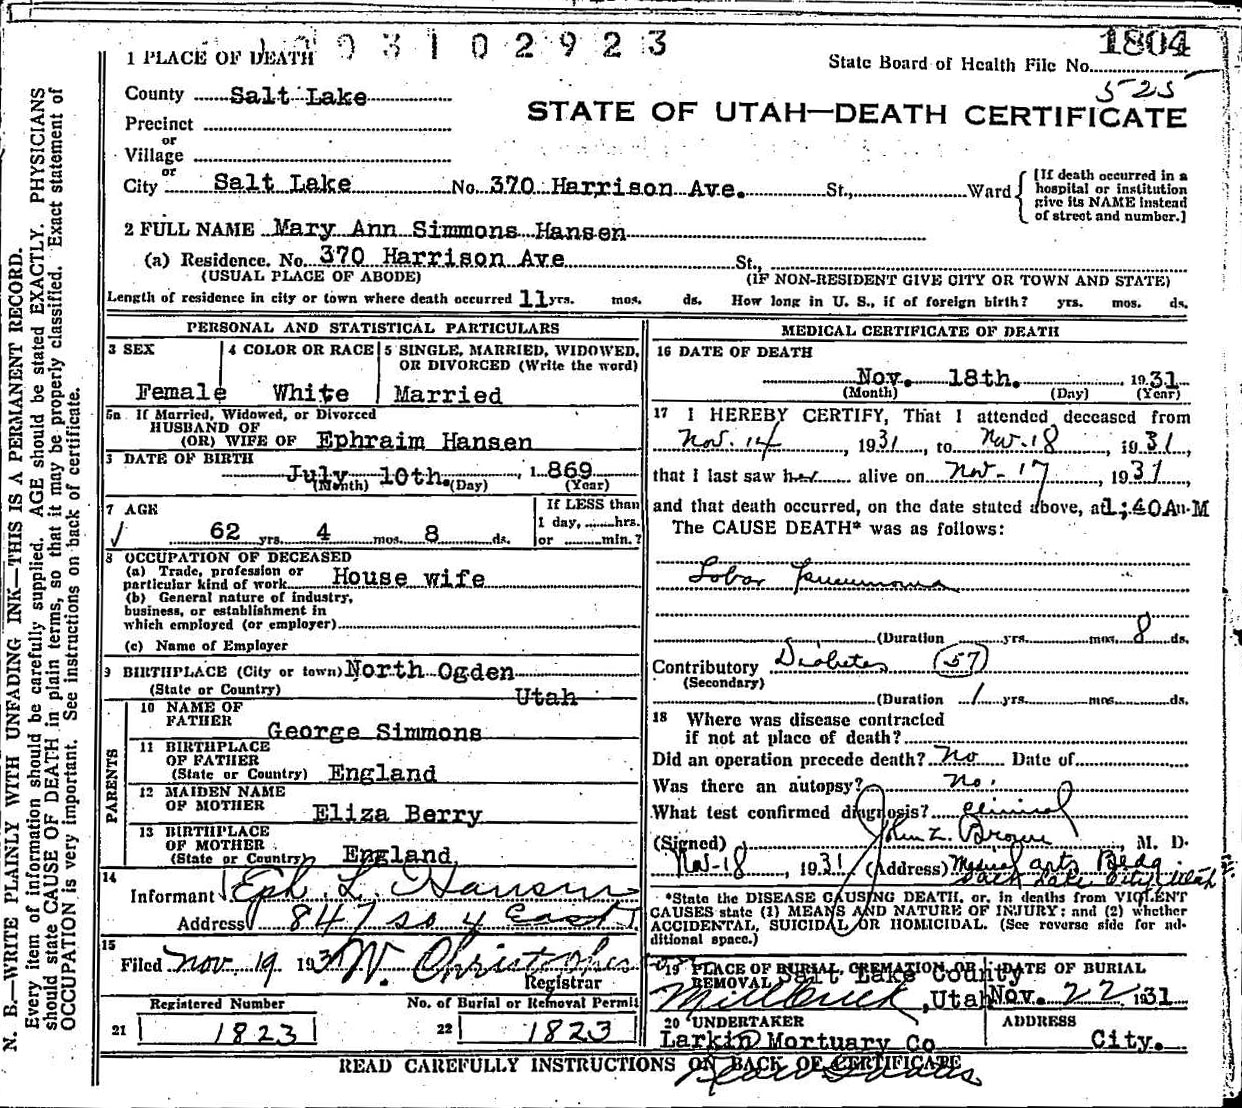 1 PLACE OF DEATH
1804
State Board of Health File No.
525
County Salt Lake
STATE OF UTAH—DEATH CERTIFICATE
Precinct
or
Village
or
City Salt Lake No. 370 Harrison Ave. St., Ward
[If death occurred in a
hospital or institution
give its NAME instead
of street and number.]
2 FULL NAME Mary Ann Simmons Hansen
(a) Residence. No. 370 Harrison Ave St.,
(USUAL PLACE OF ABODE) (IF NON-RESIDENT GIVE CITY OR TOWN AND STATE)
Length of residence in city or town where death occurred 11 yrs. mos. ds. How long in U. S., if of foreign birth? yrs. mos. ds.
PERSONAL AND STATISTICAL PARTICULARS
3 SEX
Female
4 COLOR OR RACE
White
5 SINGLE, MARRIED, WIDOWED,
OR DIVORCED (Write the word)
Married
5a If Married, Widowed, or Divorced
HUSBAND OF
(OR) WIFE OF Ephraim Hansen
3 DATE OF BIRTH
July 10th. , 1869
(Month) (Day) (Year)
7 AGE
62 yrs. 4 mos. 8 ds.
If LESS than
1 day, hrs.
or min.?
8 OCCUPATION OF DECEASED
(a) Trade, profession or
particular kind of work House wife
(b) General nature of industry,
business, or establishment in
which employed (or employer)
(c) Name of Employer
9 BIRTHPLACE (City or town) North Ogden
(State or Country) Utah
PARENTS
10 NAME OF
FATHER
George Simmons
11 BIRTHPLACE
OF FATHER
(State or Country) England
12 MAIDEN NAME
OF MOTHER
Eliza Berry
13 BIRTHPLACE
OF MOTHER
(State or Country) England
14
Informant Eph. L. Hansen
Address 847 So 4 East
15
Filed Nov 19 193 W. Christopher
Registrar
Registered Number No. of Burial or Removal Permit
21 1823 22 1823
MEDICAL CERTIFICATE OF DEATH
16 DATE OF DEATH
Nov. 18th. 1931
(Month) (Day) (Year)
17 I HEREBY CERTIFY, That I attended deceased from
Nov. 14, 1931, to Nov. 18, 1931,
that I last saw her alive on Nov-17, 1931,
and that death occurred, on the date stated above, at 1;40 A M
The CAUSE DEATH* was as follows:
Lobar Pneumonia
(Duration yrs. mos. 8 ds.
Contributory Diabetes (57)
(Secondary)
(Duration 1 yrs. mos. ds.
18 Where was disease contracted
if not at place of death?
Did an operation precede death? No Date of
Was there an autopsy? No.
What test confirmed diagnosis? Clinical
(Signed) John Z. Brown, M. D.
Nov-18, 1931 (Address) Medical Arts Bldg.
Salt Lake City, Utah
*State the DISEASE CAUSING DEATH, or, in deaths from VIOLENT
CAUSES state (1) MEANS AND NATURE OF INJURY; and (2) whether
ACCIDENTAL, SUICIDAL OR HOMICIDAL. (See reverse side for ad-
ditional space.)
19 PLACE OF BURIAL, CREMATION OR
REMOVAL Salt Lake County
Millcreek, Utah
DATE OF BURIAL
Nov. 22 1931
20 UNDERTAKER
Larkin Mortuary Co
ADDRESS
City.
READ CAREFULLY INSTRUCTIONS ON BACK OF CERTIFICATE
N. B.—WRITE PLAINLY WITH UNFADING INK—THIS IS A PERMANENT RECORD.
Every item of information should be carefully supplied. AGE should be stated EXACTLY. PHYSICIANS
should state CAUSE OF DEATH in plain terms, so that it may be properly classified. Exact statement of
OCCUPATION is very important. See instructions on back of certificate.